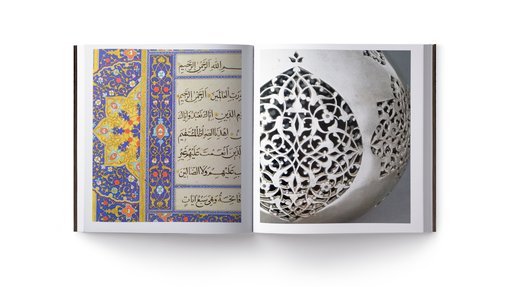 سم الله الرحمن الرحيم
رب العالمين الرحمن الرحيم
الدين اياك نعبد واياك
اهدنا الصراط المستقيم
الذين انعمت عليهم غير
عليهم ولا الضالين
فاتحة وهي سبع ايات